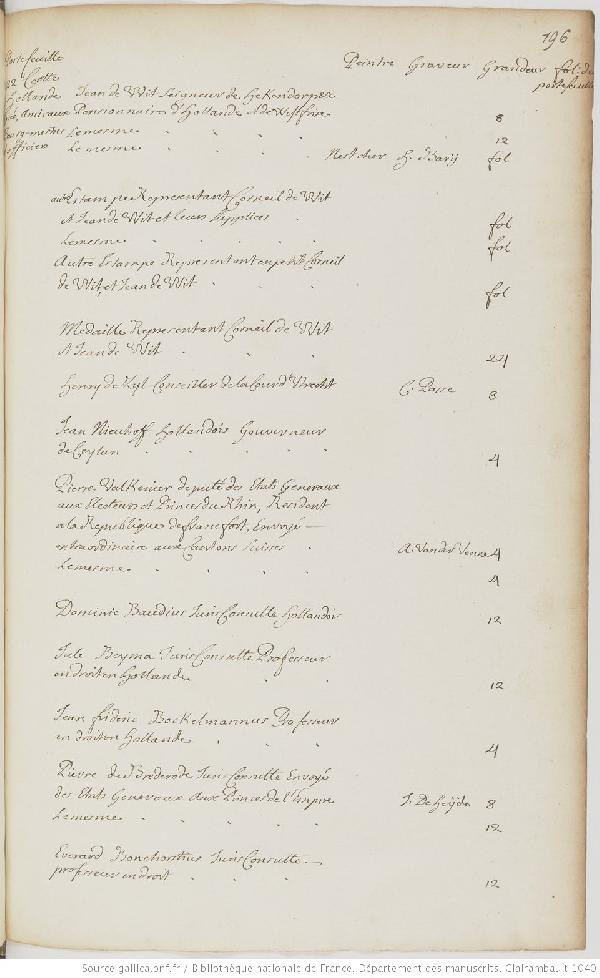 196
Portefeuille
22 Cotte
Peintre Graveur Grandeur fol. du
portefeuille
Hollande Jean de Wit Seigneur de Hekendorpen
Amiraux Pensionnaire d'Hollande & de Westfrise 8
Bourgmestres Lemesme . . . . 12
officiers Lemesme . . . . Netscher H. Bary fol
autre Estampe Representant Corneil de Wit
et Jean de Wit et leurs supplices . fol
Lemesme . . . . fol
Autre Estampe Representant en petit Corneil
de Wit, et Jean de Wit . . . fol
Medaille Representant Corneil de Wit
et Jean de Wit . . . 24
Henry de Zyl Conseiller de la Cour d'Utrecht C. Passe 8
Jean Nieuhoff Hollandois Gouverneur
de Ceylan . . . . 4
Pierre Valkenier deputé des Etats Generaux
aux Electeurs et Princes du Rhin, Resident
a la Republique de francfort, Envoyé
extraordinaire aux Cantons Suisses . A. Vander Venne 4
Lemesme . . . . 4
Dominic Baudius Juris Consulte Hollandois 12
Jule Beyma Juris Consulte Professeur
en droit en Hollande . . 12
Jean frideric Bockelmannus Professeur
en droit en Hollande . . . 4
Pierre de Brederode Juris Consulte Envoyé
des Etats Generaux aux Princes de l'Empire J. De Heyde 8
Lemesme . . . . 12
Everard Bronchorstius Juris Consulte
professeur en droit . . . 12
Source gallica.bnf.fr / Bibliothèque nationale de France. Département des manuscrits. Clairambault 1040